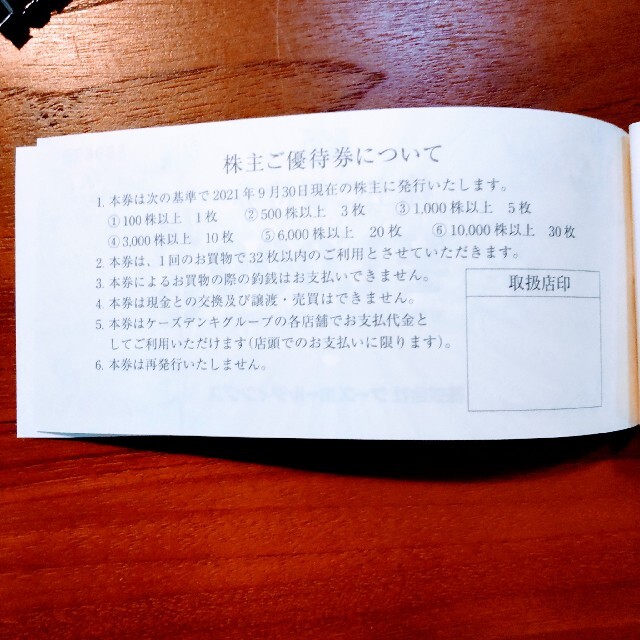 株主ご優待券について
1. 本券は次の基準で2021年9月30日現在の株主に発行いたします。
①100株以上 1枚 ②500株以上 3枚 ③1,000株以上 5枚
④3,000株以上 10枚 ⑤6,000株以上 20枚 ⑥10,000株以上 30枚
2. 本券は、1回のお買物で32枚以内のご利用とさせていただきます。
3. 本券によるお買物の際の釣銭はお支払いできません。
4. 本券は現金との交換及び譲渡・売買はできません。
5. 本券はケーズデンキグループの各店舗でお支払代金と
してご利用いただけます(店頭でのお支払いに限ります)。
6. 本券は再発行いたしません。
取扱店印